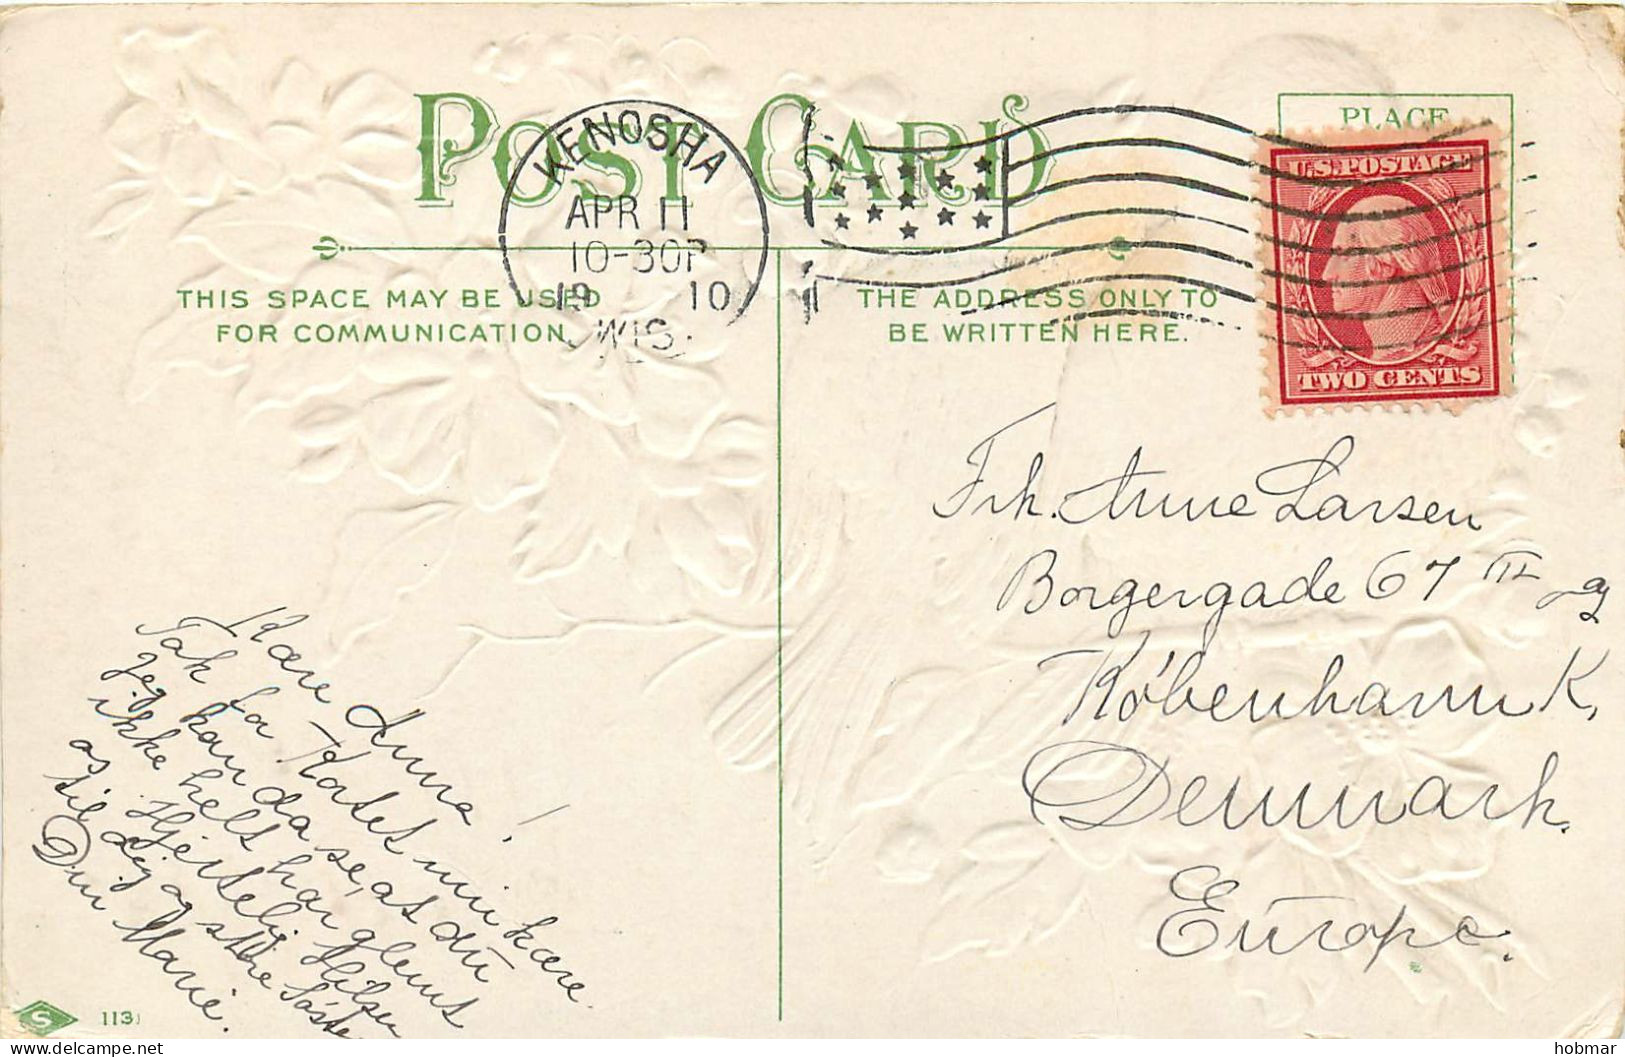 POST CARD
KENOSHA
APR 11
10-30P
19 10
WIS.
PLACE
U.S. POSTAGE
TWO CENTS
THIS SPACE MAY BE USED
FOR COMMUNICATION.
THE ADDRESS ONLY TO
BE WRITTEN HERE.
Frk. Anne Larsen
Borgergade 67 III
København K,
Denmark.
Europe.
Kære Anna!
Tak for Kortet min kære
jeg kan da se, at du
ikke helt har glemt
Hjertelig Hilsen
til dig og
Din Marie.
S 113
hobmar